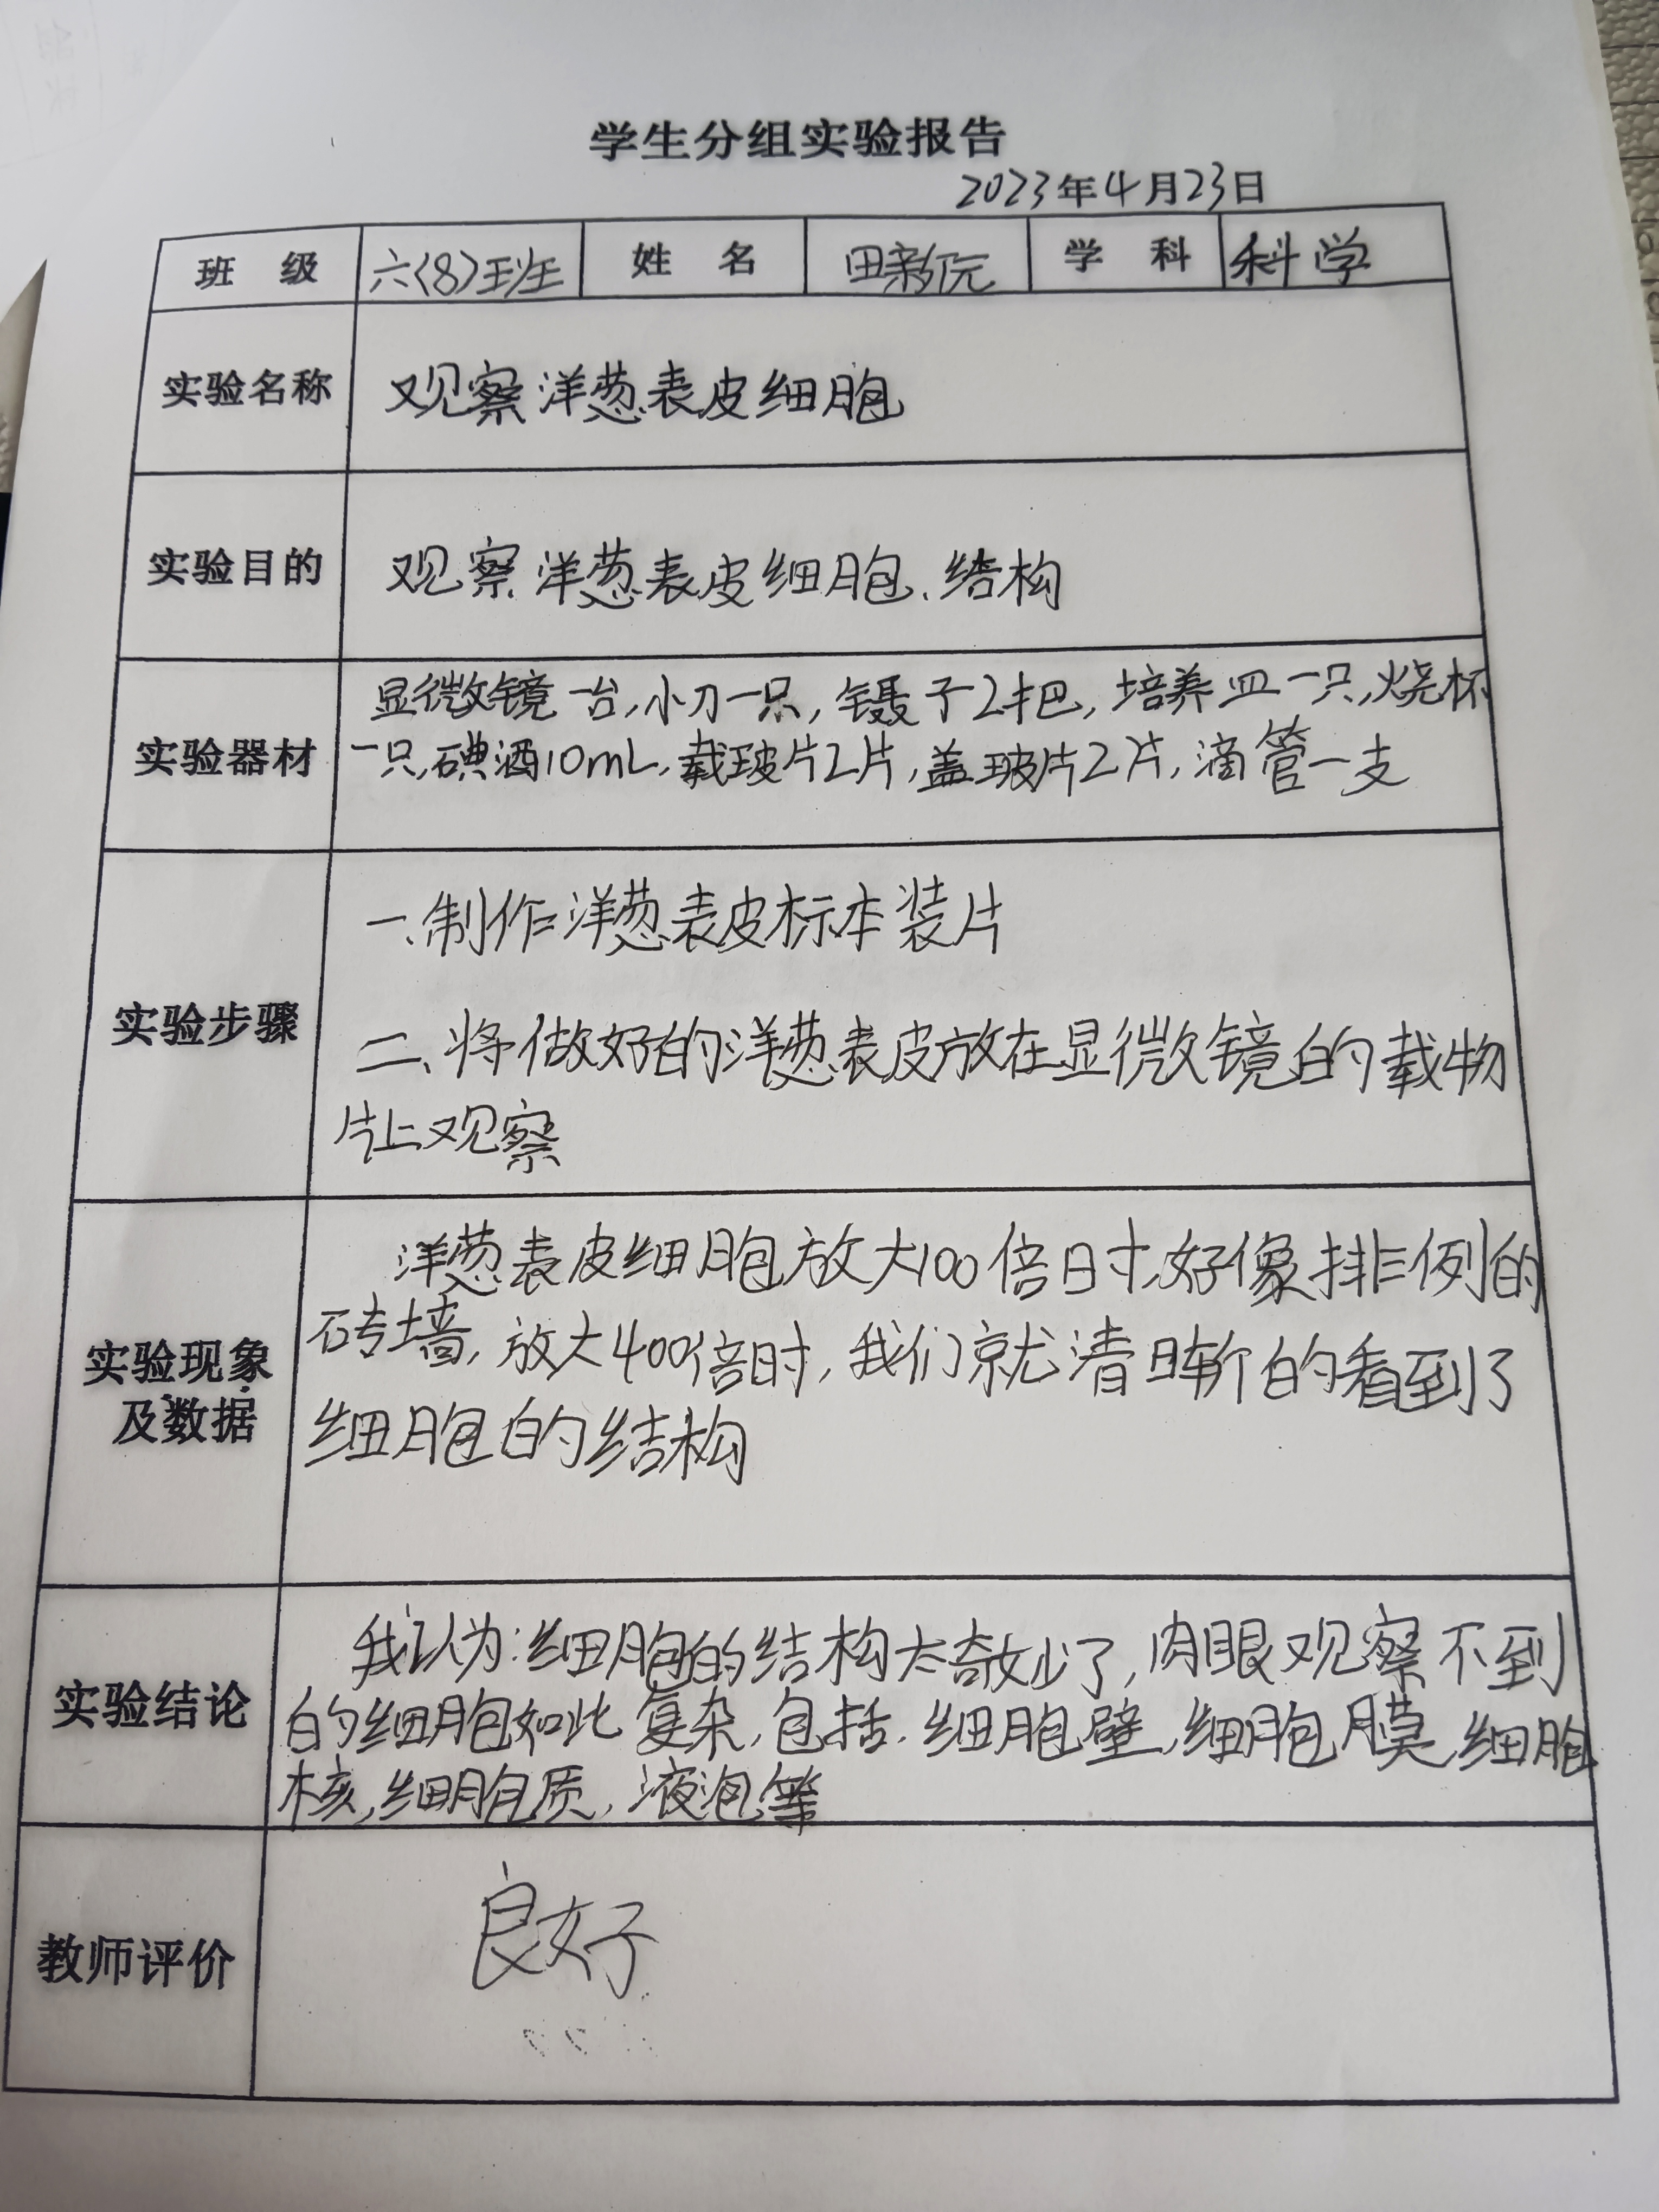 学生分组实验报告
2023年4月23日
班级 六(8)班 姓名 田新沅 学科 科学
实验名称 观察洋葱表皮细胞
实验目的 观察洋葱表皮细胞、结构
实验器材 显微镜一台,小刀一只,镊子2把,培养皿一只,烧杯
一只,碘酒10mL,载玻片2片,盖玻片2片,滴管一支
实验步骤
一、制作洋葱表皮标本装片
二、将做好的洋葱表皮放在显微镜的载物
片上观察
实验现象
及数据
洋葱表皮细胞放大100倍时,好像排例的
砖墙,放大400倍时,我们就清晰的看到了
细胞的结构
实验结论
我认为:细胞的结构太奇妙了,肉眼观察不到
的细胞如此复杂,包括.细胞壁,细胞膜,细胞
核,细胞质,液泡等
教师评价 良好